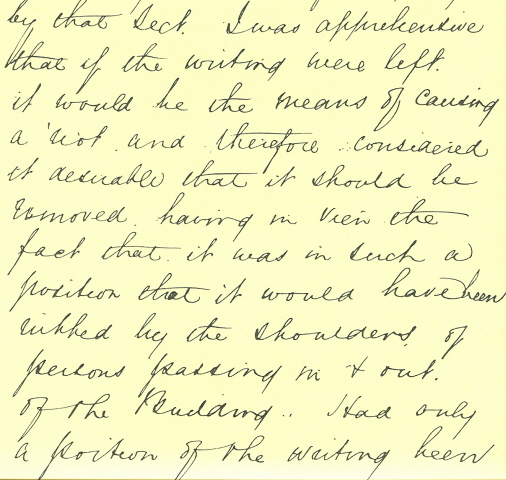 by that sect. I was apprehensive
that if the writing were left.
it would be the means of causing
a riot and therefore considered
it desirable that it should be
removed, having in view the
fact that it was in such a
position that it would have been
rubbed by the shoulders of
persons passing in & out.
of the Building.. Had only
a portion of the writing been